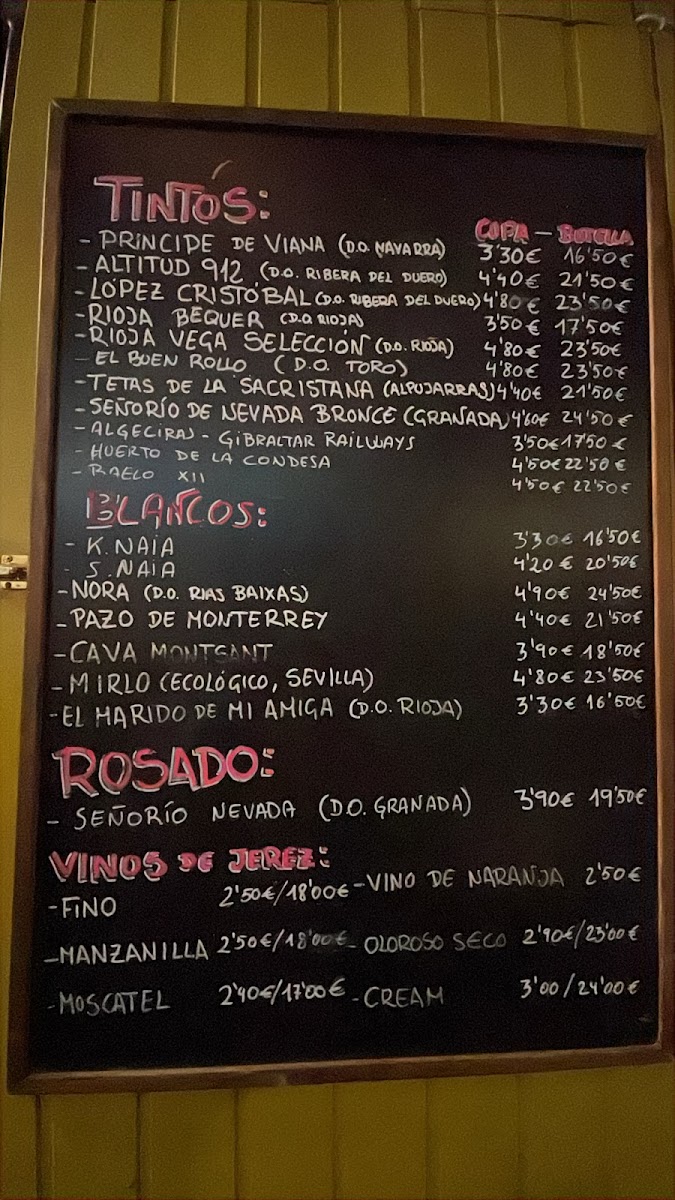 TINTOS:
COPA - BOTELLA
- PRINCIPE DE VIANA (D.O. NAVARRA) 3'30€ 16'50€
- ALTITUD 912 (D.O. RIBERA DEL DUERO) 4'40€ 21'50€
- LÓPEZ CRISTÓBAL (D.O. RIBERA DEL DUERO) 4'80€ 23'50€
- RIOJA BEQUER (D.O. RIOJA) 3'50€ 17'50€
- RIOJA VEGA SELECCIÓN (D.O. RIOJA) 4'80€ 23'50€
- EL BUEN ROLLO (D.O. TORO) 4'80€ 23'50€
- TETAS DE LA SACRISTANA (ALPUJARRAS) 4'40€ 21'50€
- SEÑORÍO DE NEVADA BRONCE (GRANADA) 4'60€ 24'50€
- ALGECIRAS - GIBRALTAR RAILWAYS 3'50€ 17'50€
- HUERTO DE LA CONDESA 4'50€ 22'50€
- RAELO XII 4'50€ 22'50€
BLANCOS:
- K. NAIA 3'30€ 16'50€
- S. NAIA 4'20€ 20'50€
- NORA (D.O. RIAS BAIXAS) 4'90€ 24'50€
- PAZO DE MONTERREY 4'40€ 21'50€
- CAVA MONTSANT 3'90€ 18'50€
- MIRLO (ECOLÓGICO, SEVILLA) 4'80€ 23'50€
- EL MARIDO DE MI AMIGA (D.O. RIOJA) 3'30€ 16'50€
ROSADO:
- SEÑORÍO NEVADA (D.O. GRANADA) 3'90€ 19'50€
VINOS DE JEREZ:
- FINO 2'50€/18'00€ - VINO DE NARANJA 2'50€
- MANZANILLA 2'50€/18'00€ - OLOROSO SECO 2'90€/23'00€
- MOSCATEL 2'40€/17'00€ - CREAM 3'00/24'00€